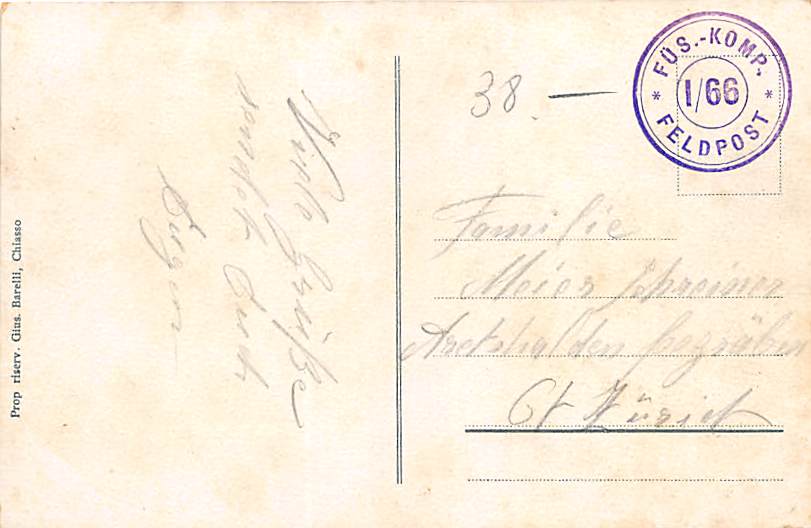 Viele Grüße
sendet Euch
Eugen
Prop riserv. Gius. Barelli, Chiasso
38.—
FÜS.-KOMP.
I/66
* FELDPOST *
Familie
Meier Schreiner
Ct Zürich